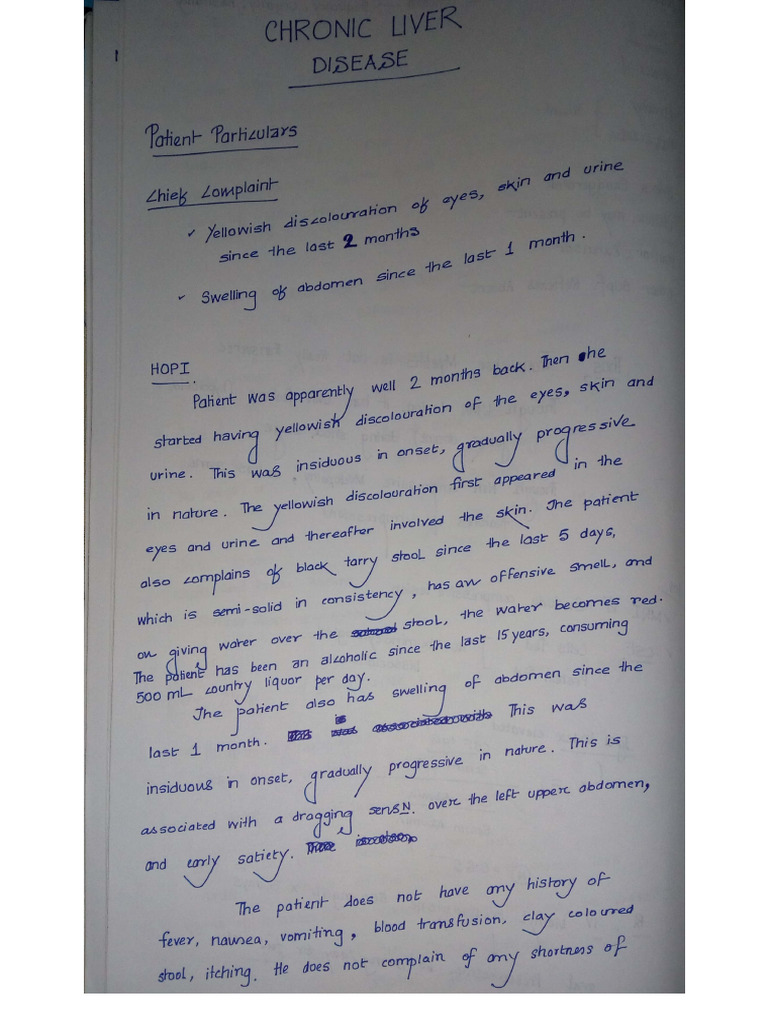 CHRONIC LIVER
DISEASE
1
Patient Particulars
Chief Complaint
✓ Yellowish discolouration of eyes, skin and urine
since the last 2 months
✓ Swelling of abdomen since the last 1 month.
HOPI.
Patient was apparently well 2 months back. Then he
started having yellowish discolouration of the eyes, skin and
urine. This was insiduous in onset, gradually progressive
in nature. The yellowish discolouration first appeared in the
eyes and urine and thereafter involved the skin. The patient
also complains of black tarry stool since the last 5 days,
which is semi-solid in consistency, has an offensive smell, and
on giving water over the stool, the water becomes red.
The patient has been an alcoholic since the last 15 years, consuming
500 mL country liquor per day.
The patient also has swelling of abdomen since the
last 1 month. This was
insiduous in onset, gradually progressive in nature. This is
associated with a dragging sensN. over the left upper abdomen,
and early satiety.
The patient does not have any history of
fever, nausea, vomiting, blood transfusion, clay coloured
stool, itching. He does not complain of any shortness of